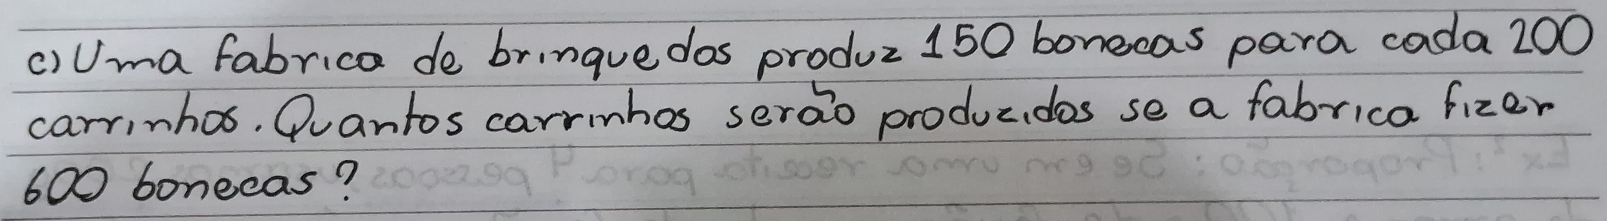 c) Uma fabrica de brinquedos produz 150 bonecas para cada 200
carrinhos. Quantos carrinhos serão produzidos se a fabrica fizer
600 bonecas?